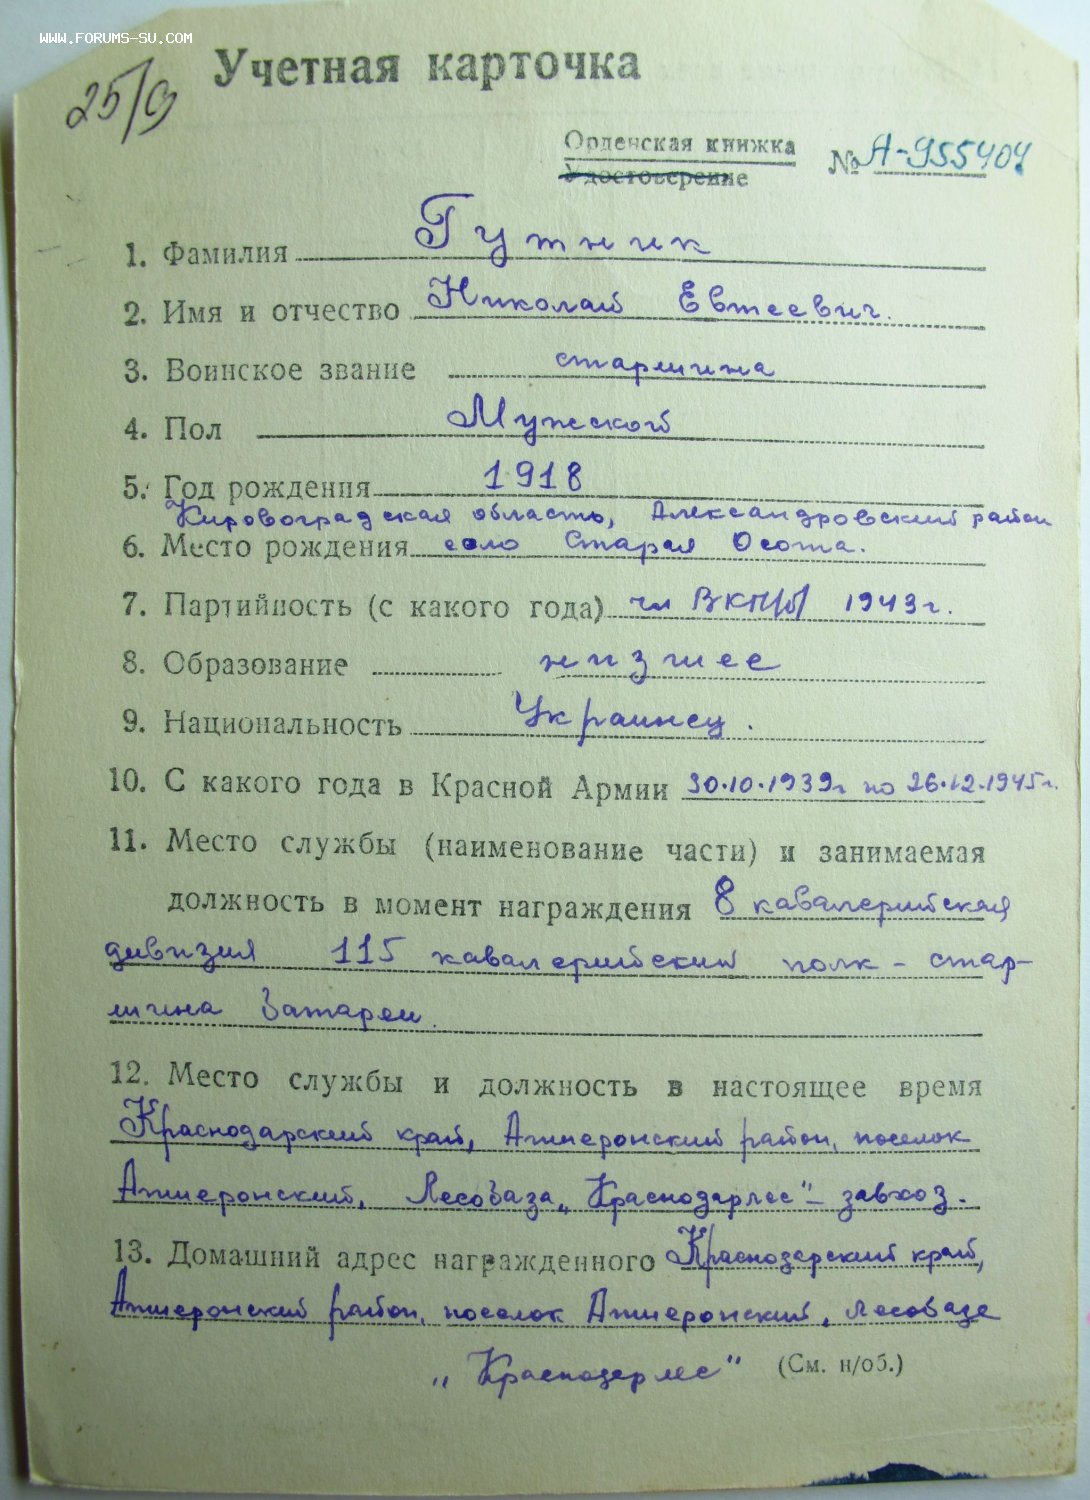 WWW.FORUMS-SU.COM
Учетная карточка
25/9
Орденская книжка
Удостоверение
№ А-955404
1. Фамилия Гутник
2. Имя и отчество Николай Евтеевич.
3. Воинское звание старшина
4. Пол Мужской
5. Год рождения 1918
Кировоградская область, Александровский район
6. Место рождения село Старая Осота.
7. Партийность (с какого года) чл ВКП/б/ 1943г.
8. Образование низшее
9. Национальность Украинец.
10. С какого года в Красной Армии 30.10.1939г по 26.12.1945г.
11. Место службы (наименование части) и занимаемая
должность в момент награждения 8 кавалерийская
дивизия 115 кавалерийский полк - стар-
шина батареи.
12. Место службы и должность в настоящее время
Краснодарский край, Апшеронский район, поселок
Апшеронский, Лесобаза „Краснодарлес" - завхоз.
13. Домашний адрес награжденного Краснодарский край,
Апшеронский район, поселок Апшеронский, лесобаза
„Краснодарлес" (См. н/об.)